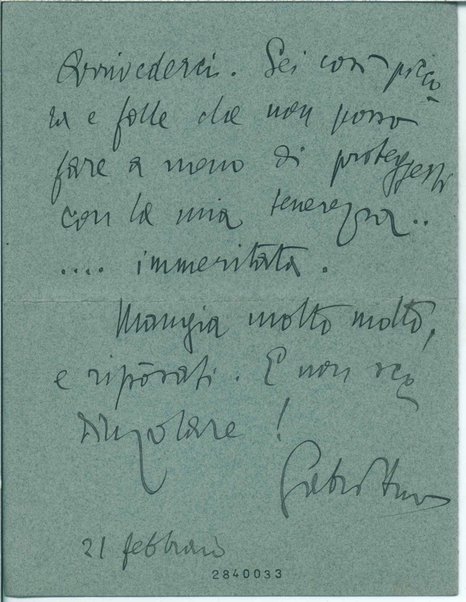 Arrivederci. Sei così picco-
la e folle che non posso
fare a meno di proteggerti
con la mia tenerezza..
.... immeritata.
Mangia molto molto,
e ripòsati. E non

21 febbraio
2840033